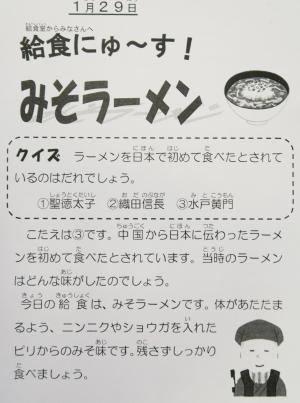 1月29日
給食室からみなさんへ
給食にゅ～す！
みそラーメン
クイズ ラーメンを日本で初めて食べたとされて
いるのはだれでしょう。
①聖徳太子 ②織田信長 ③水戸黄門
こたえは③です。中国から日本に伝わったラーメ
ンを初めて食べたとされています。当時のラーメン
はどんな味がしたのでしょう。
今日の給食は、みそラーメンです。体があたたま
るよう、ニンニクやショウガを入れた
ピリからのみそ味です。残さずしっかり
食べましょう。